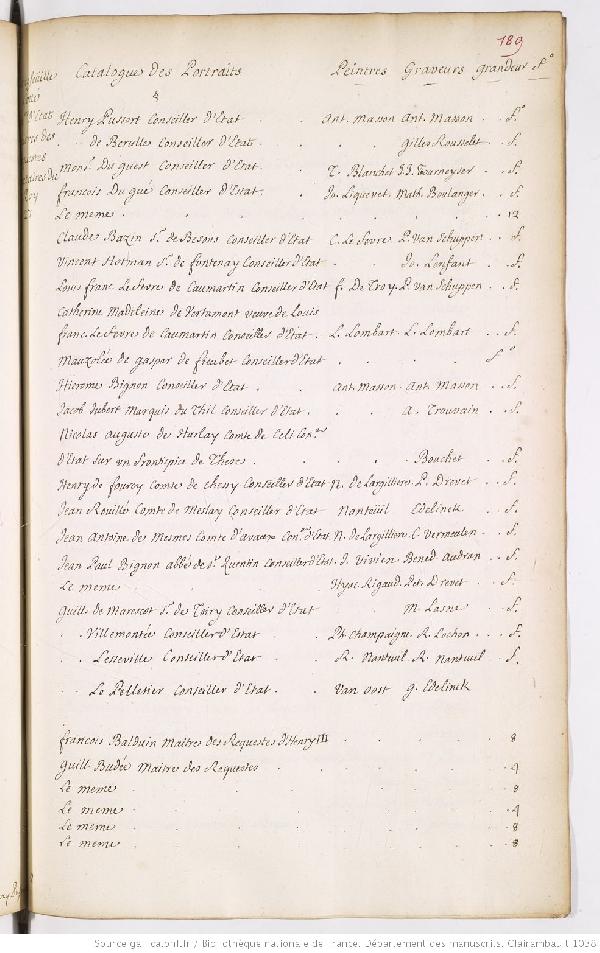 189
Catalogue des Portraits Peintres Graveurs grandeur f°
4
Henry Pussort Conseiller d'Etat Ant. Masson Ant. Masson . . f°
. . de Berulles Conseiller d'Etat . . . Gilles Rousselet . . f.
Mons.r Du guest Conseiller d'Etat . T. Blanchet JJ. Tourneyser . . f.
francois Du gué Conseiller d'Etat . Jo. Liquevet Math. Boulanger . . f.
Le meme . . . . . . . 12
Claude Bazin S.r de Besons Conseiller d'Etat C. Le fevre P. Van Schuppen . . f.
Vincent Hotman S.r de fontenay Conseiller d'Etat . . Jo. Lenfant . . f.
Louis franc. Le fevre de Caumartin Conseiller d'Etat f. De Troy. P. Van Schuppen . . f.
Catherine Madeleine de Vertamont veuve de Louis
franc. Le fevre de Caumartin Conseiller d'Etat . L. Lombart . L. Lombart . . f.
Mauzolée de gaspar de fieubet Conseiller d'Etat . . . . f°
Hierome Bignon Conseiller d'Etat . . Ant. Masson . Ant. Masson . . f.
Jacob hubert Marquis du Thil Conseiller d'Etat . . . A. Trouvain . . f.
Nicolas Auguste de Harlay Comte de Celi Con.er
d'Etat sur un frontispice de These . . . . Bouchet . . f.
Henry de fourcy Comte de Chessy Conseiller d'Etat N. de Largilliere. P. Drevet . . f.
Jean Rouillé Comte de Meslay Conseiller d'Etat Nanteuil Edelinck . . f.
Jean Antoine de Mesmes Comte d'avaux Con.er d'Etat N. de Largilliere C. Vermeulen . . f.
Jean Paul Bignon abbé de S.t Quentin Conseiller d'Etat J. Vivien Bened. Audran . . f.
Le meme . . . . Hyac. Rigaud. Pet. Drevet . . f.
Guill. de Marescot S.r de Toiry Conseiller d'Etat . M. Lasne . . f.
. . Villemontée Conseiller d'Etat . . Ph. Champaigne. R. Lochon . . f.
. . Lesseville Conseiller d'Etat . . R. Nanteuil R. Nanteuil . . f.
. . Le Pelletier Conseiller d'Etat . . Van Oost G. Edelinck
francois Balduin Maitre des Requestes d'Henry III . . . . 8
Guill. Budée Maitre des Requestes . . . . . 4
Le meme . . . . . . 8
Le meme . . . . . . 4
Le meme . . . . . . 8
Le meme . . . . . . 8
Source gallica.bnf.fr / Bibliothèque nationale de France. Département des manuscrits. Clairambault 1038